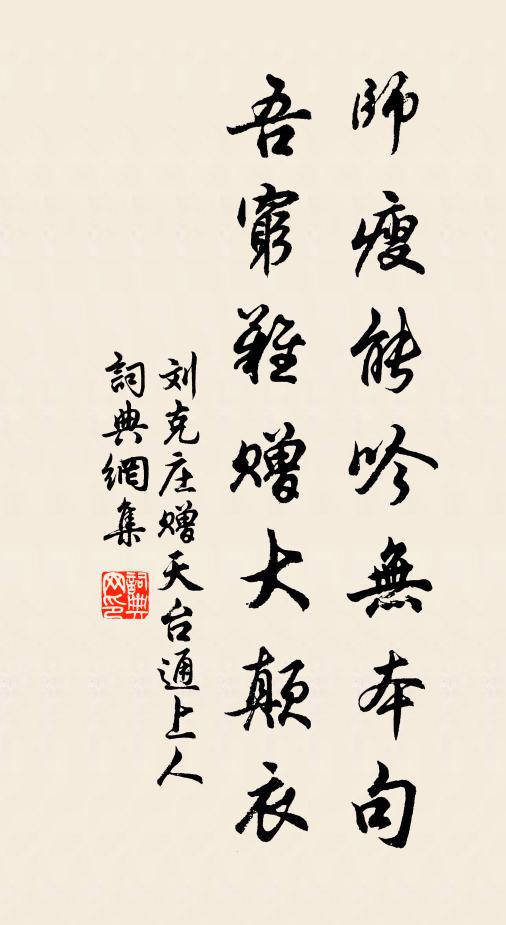 師瘦能吟無本句
吾窮難贈大顛衣
刘克庄赠天台通上人
詞典網集
詞典网印